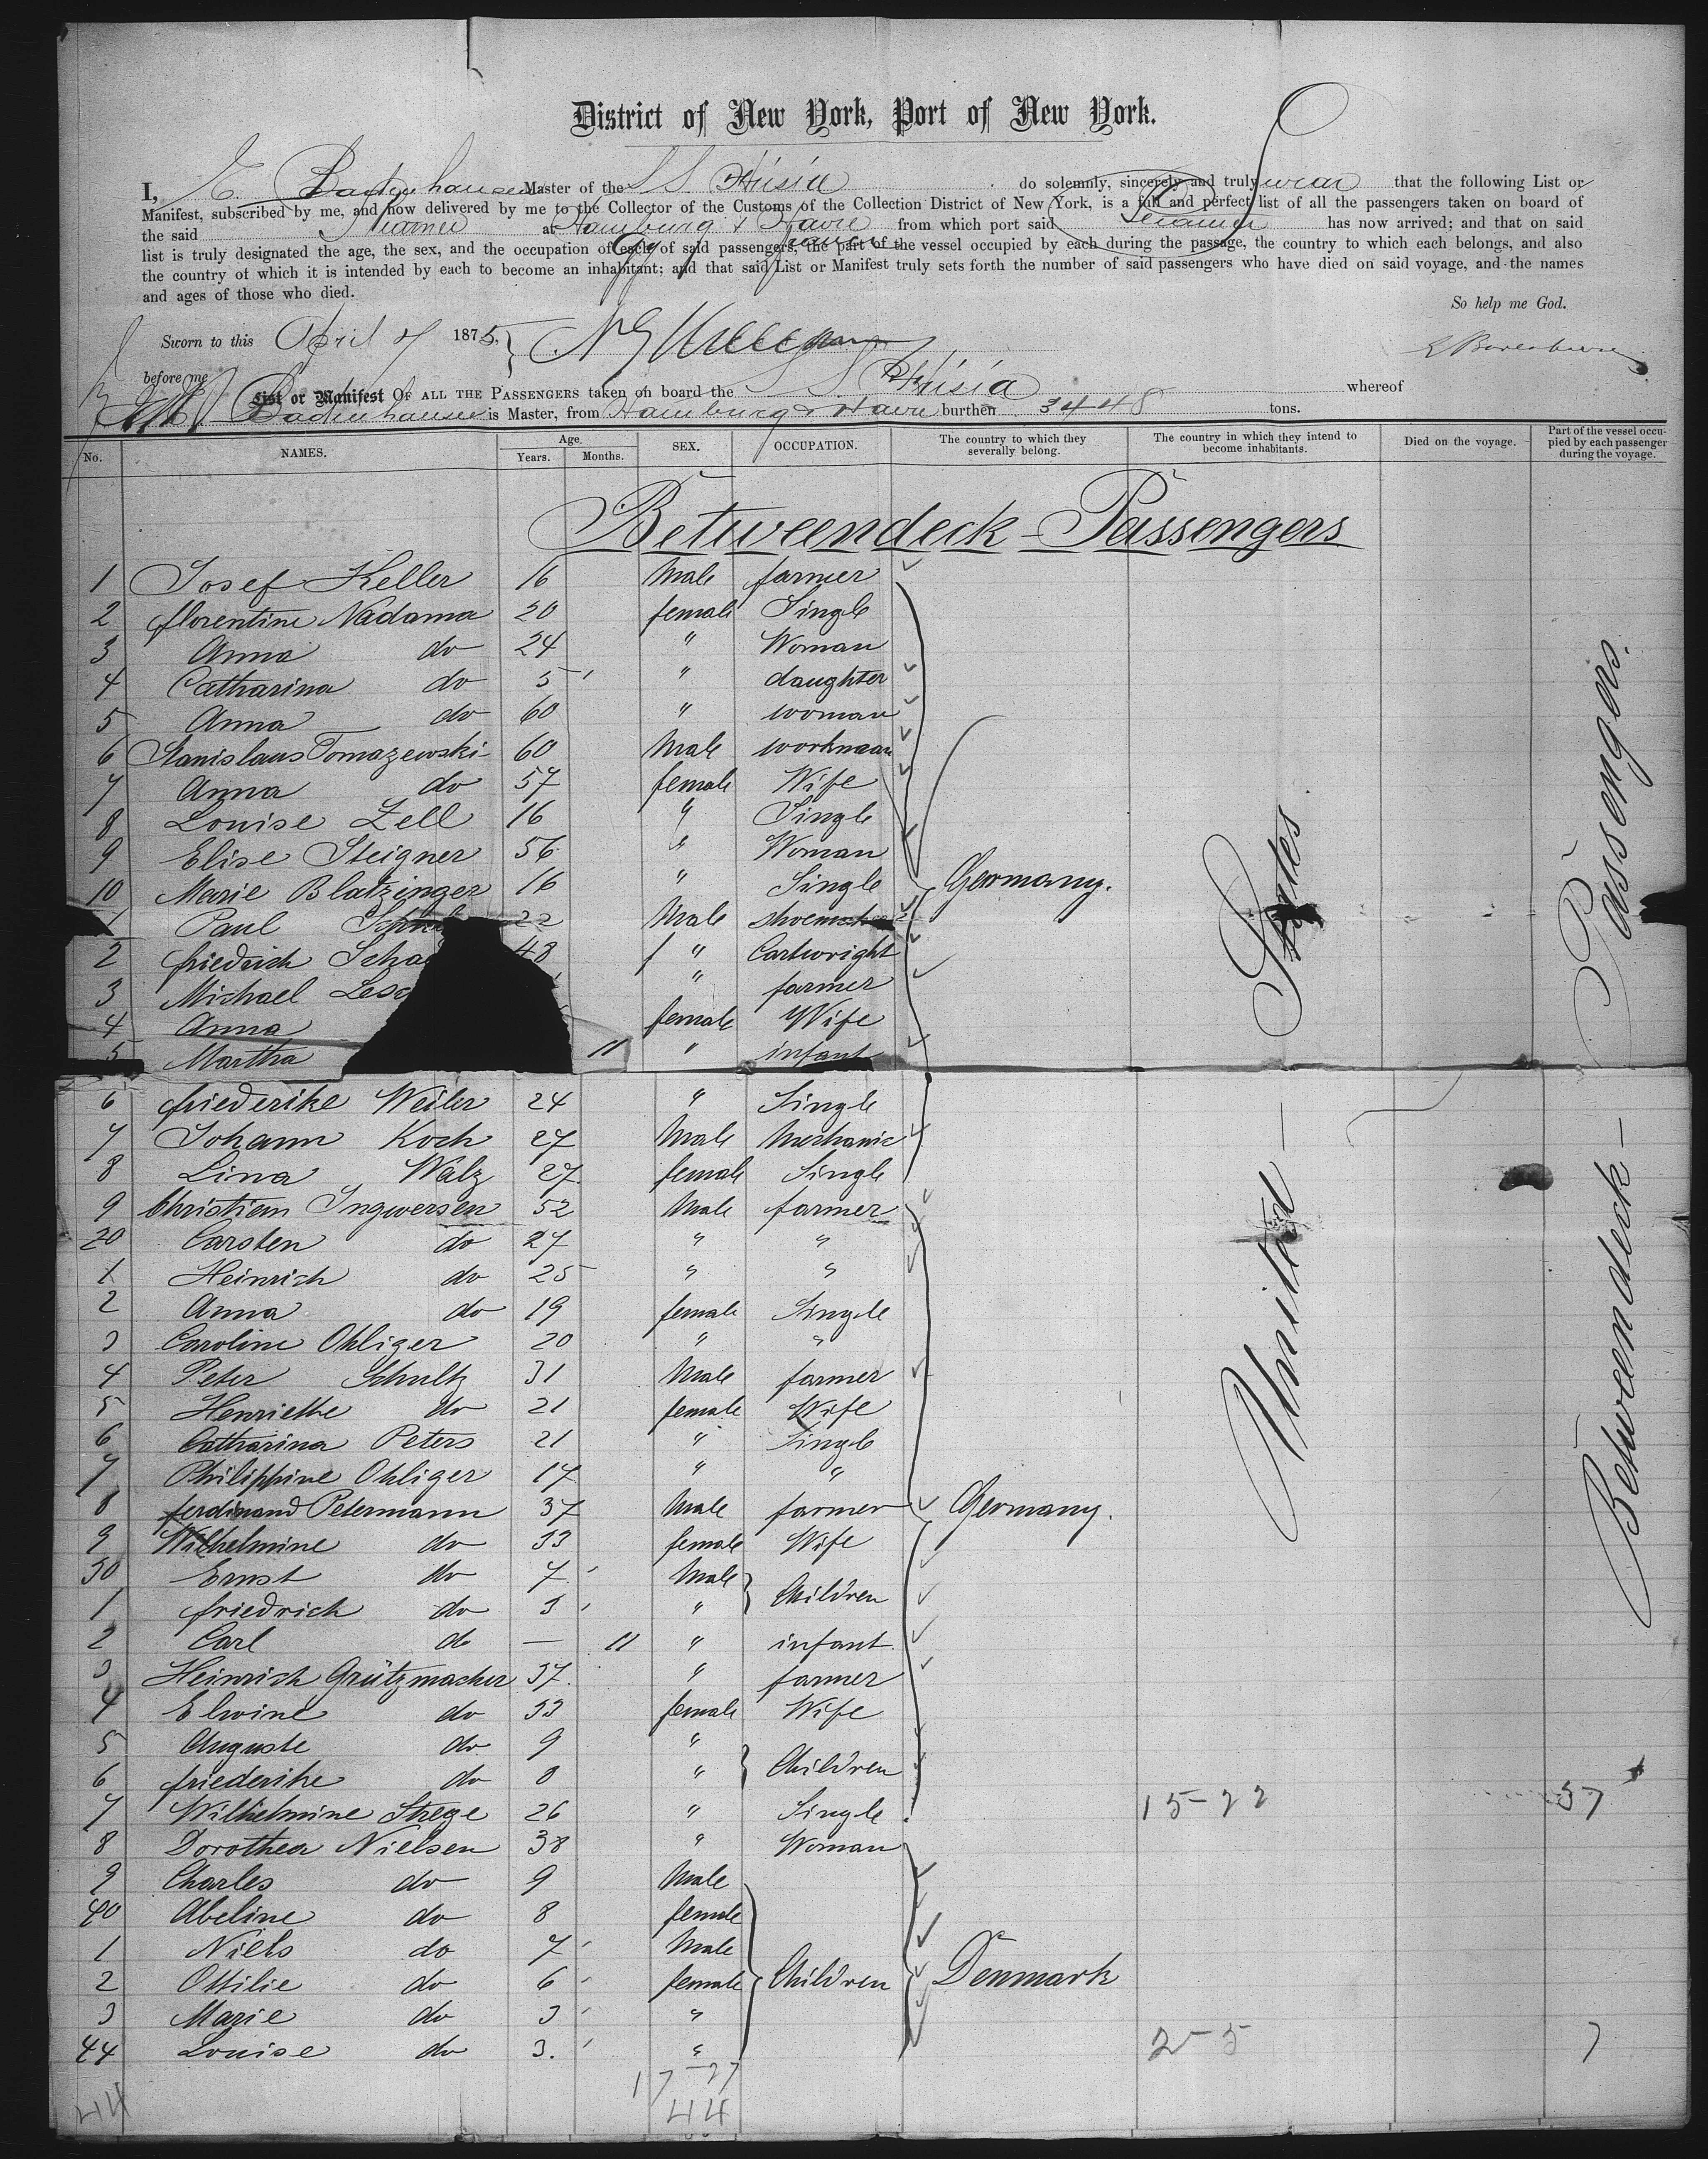 District of New York, Port of New York.
I, E. Badenhausen Master of the S S Frisia do solemnly, sincerely and truly swear that the following List or
Manifest, subscribed by me, and now delivered by me to the Collector of the Customs of the Collection District of New York, is a full and perfect list of all the passengers taken on board of
the said Steamer at Hamburg & Havre from which port said Steamer has now arrived; and that on said
list is truly designated the age, the sex, and the occupation of each of said passengers, the part of the vessel occupied by each during the passage, the country to which each belongs, and also
the country of which it is intended by each to become an inhabitant; and that said List or Manifest truly sets forth the number of said passengers who have died on said voyage, and the names
and ages of those who died.
So help me God.
Sworn to this April 7 1875,
before me
List or Manifest OF ALL THE PASSENGERS taken on board the S S Frisia whereof
Badenhausen is Master, from Hamburg & Havre burthen 3448 tons.
No. NAMES. Age. Years. Months. SEX. OCCUPATION. The country to which they severally belong. The country in which they intend to become inhabitants. Died on the voyage. Part of the vessel occupied by each passenger during the voyage.
Betweendeck-Passengers
1 Josef Keller 16 Male farmer
2 florentine Nadama 20 female Single
3 Anna do 24 " Woman
4 Catharina do 5 " daughter
5 Anna do 60 " woman
6 Stanislaus Tomazewski 60 Male workmaan
7 Anna do 57 female Wife
8 Louise Zell 16 " Single
9 Elise Steigner 56 " Woman
10 Marie Blatzinger 16 " Single Germany.
1 Paul 22 Male
2 friedrich 48 " Cartwright
3 Michael " farmer
4 Anna female Wife
5 Martha 11 " infant
6 friederike Weiler 24 " Single
7 Johann Koch 27 Male Mechanic
8 Lina Walz 27 female Single
9 Christian Ingwersen 52 Male farmer
20 Carsten do 27 " "
1 Heinrich do 25 " "
2 Anna do 19 female Single
3 Caroline Ohliger 20 " "
4 Peter Schultz 31 Male farmer
5 Henriethe do 21 female Wife
6 Catharina Peters 21 " Single
7 Philippine Ohliger 17 " "
8 ferdinand Petermann 37 Male farmer Germany.
9 Wilhelmine do 33 female Wife
30 Ernst do 7 Male Children
1 friedrich do 3 "
2 Carl do — 11 " infant
3 Heinrich Grützmacher 37 " farmer
4 Elwine do 33 female Wife
5 Auguste do 9 " Children
6 friederike do 8 "
7 Wilhelmine Strege 26 " Single 15-22 37
8 Dorothea Nielsen 38 " Woman
9 Charles do 9 Male
40 Abeline do 8 female
1 Niels do 7 Male
2 Ottilie do 6 female Children Denmark
3 Marie do 3 "
44 Louise do 3. " 2-5 7
17-27
44 44
United States
Betweendeck - Passengers.